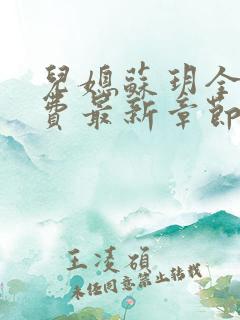 兒媳蘇玥全
費最新章節
王凌碩
未經同意禁止轉載